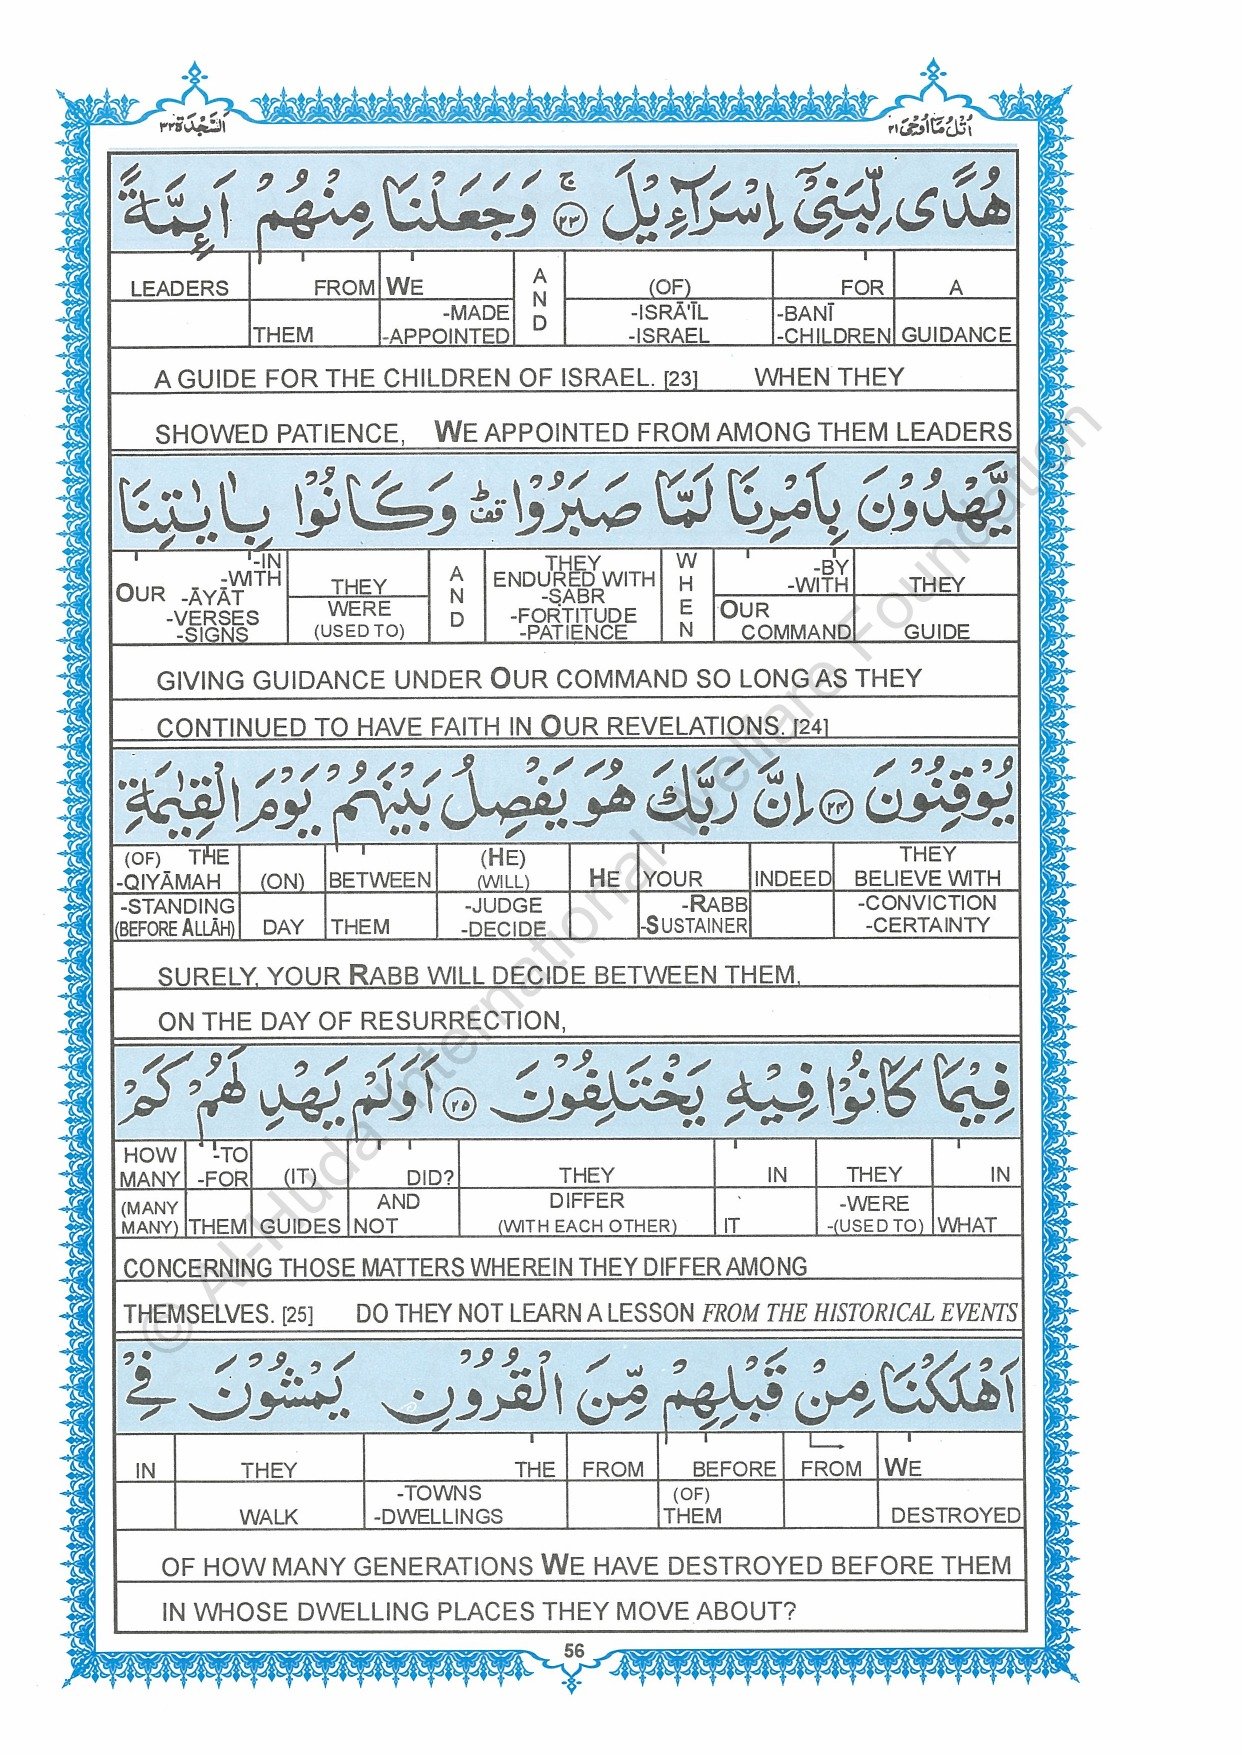 السَّجْدَة ٣٢
اُتْلُ مَآ اُوْحِیَ ٢١
هُدًى لِّبَنِيْٓ اِسْرَآءِيْلَ ۚ ﴿٢٣﴾ وَجَعَلْنَا مِنْهُمْ اَئِمَّةً
LEADERS FROM WE AND (OF) FOR A
THEM -MADE -APPOINTED -ISRĀ'ĪL -ISRAEL -BANĪ -CHILDREN GUIDANCE
A GUIDE FOR THE CHILDREN OF ISRAEL. [23] WHEN THEY
SHOWED PATIENCE, WE APPOINTED FROM AMONG THEM LEADERS
يَّهْدُوْنَ بِاَمْرِنَا لَمَّا صَبَرُوْا ۗقف وَكَانُوْا بِاٰيٰتِنَا
-IN -WITH THEY AND THEY ENDURED WITH WHEN -BY -WITH THEY
OUR -ĀYĀT -VERSES -SIGNS WERE (USED TO) -ṢABR -FORTITUDE -PATIENCE OUR COMMAND GUIDE
GIVING GUIDANCE UNDER OUR COMMAND SO LONG AS THEY
CONTINUED TO HAVE FAITH IN OUR REVELATIONS. [24]
يُوْقِنُوْنَ ﴿٢٤﴾ اِنَّ رَبَّكَ هُوَ يَفْصِلُ بَيْنَهُمْ يَوْمَ الْقِيٰمَةِ
(OF) THE -QIYĀMAH (ON) BETWEEN (HE) (WILL) HE YOUR INDEED THEY BELIEVE WITH
-STANDING (BEFORE ALLĀH) DAY THEM -JUDGE -DECIDE -RABB -SUSTAINER -CONVICTION -CERTAINTY
SURELY, YOUR RABB WILL DECIDE BETWEEN THEM,
ON THE DAY OF RESURRECTION,
فِيْمَا كَانُوْا فِيْهِ يَخْتَلِفُوْنَ ﴿٢٥﴾ اَوَلَمْ يَهْدِ لَهُمْ كَمْ
HOW MANY -TO -FOR (IT) DID? THEY IN THEY IN
(MANY MANY) THEM GUIDES AND NOT DIFFER (WITH EACH OTHER) IT -WERE -(USED TO) WHAT
CONCERNING THOSE MATTERS WHEREIN THEY DIFFER AMONG
THEMSELVES. [25] DO THEY NOT LEARN A LESSON FROM THE HISTORICAL EVENTS
اَهْلَكْنَا مِنْ قَبْلِهِمْ مِّنَ الْقُرُوْنِ يَمْشُوْنَ فِيْ
IN THEY THE FROM BEFORE FROM WE
WALK -TOWNS -DWELLINGS (OF) THEM DESTROYED
OF HOW MANY GENERATIONS WE HAVE DESTROYED BEFORE THEM
IN WHOSE DWELLING PLACES THEY MOVE ABOUT?
56
© Al-Huda International Welfare Foundation